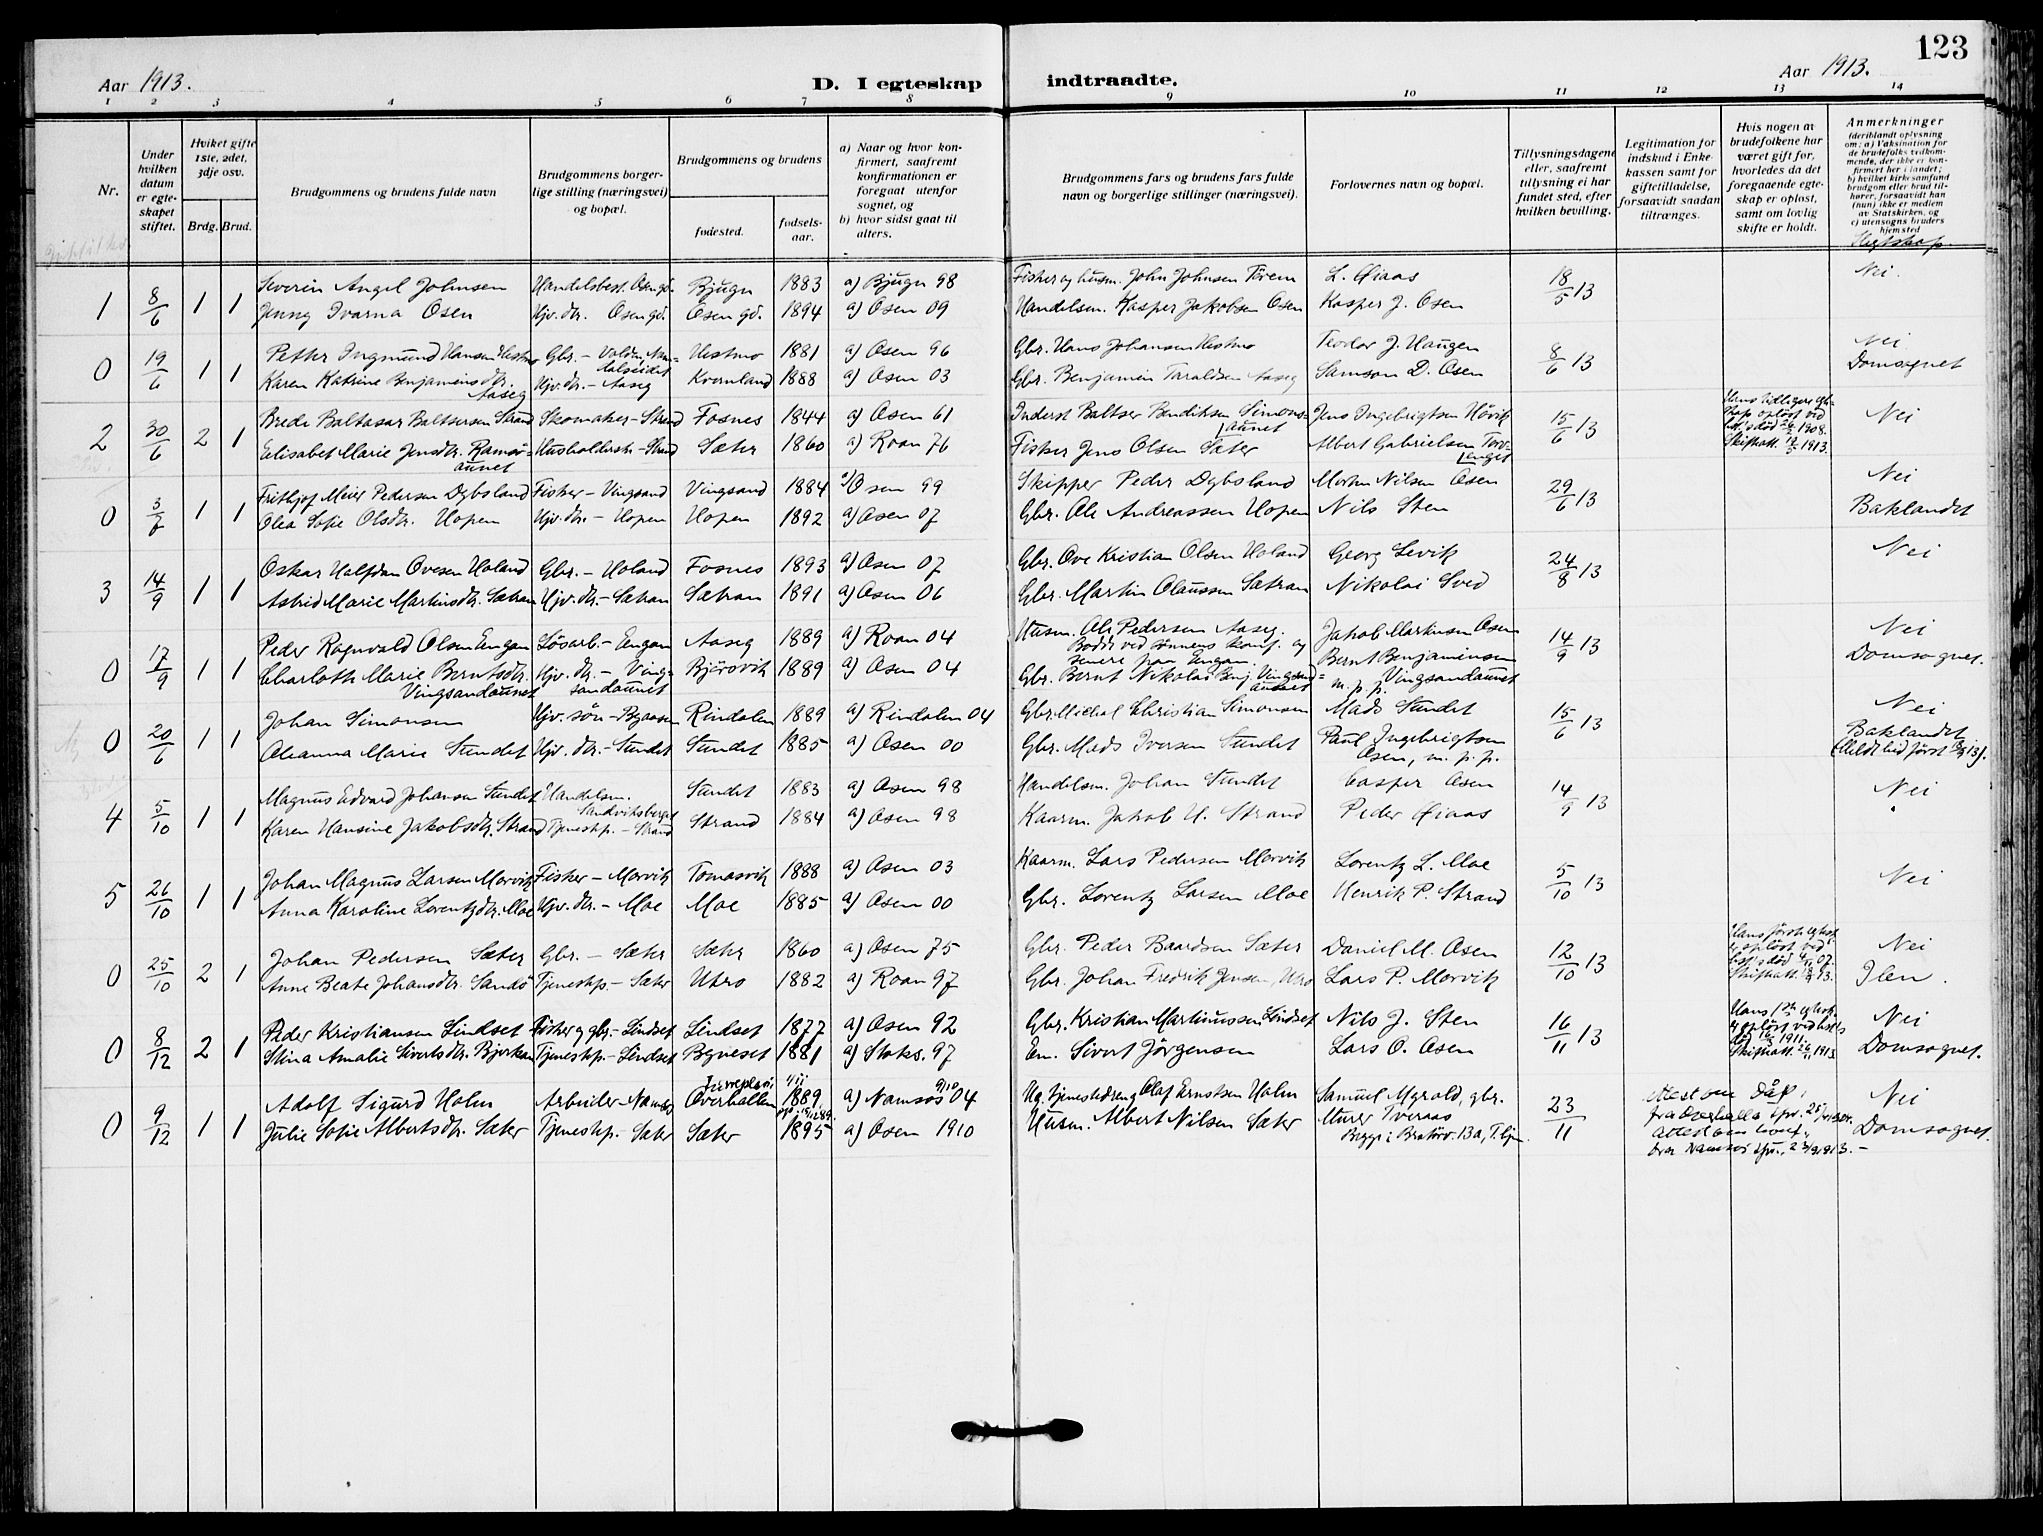 123
Aar 1913.
D. I egteskap indtraadte.
Aar 1913.
1 2 3 4 5 6 7 8 9 10 11 12 13 14
Nr.
Under hvilken datum er egteskapet stiftet.
Hviket gifte 1ste, 2det, 3dje osv.
Brdg. Brud.
Brudgommens og brudens fulde navn
Brudgommens borgerlige stilling (næringsvei) og bopæl.
Brudgommens og brudens
fødested.
fødselsaar.
a) Naar og hvor konfirmert, saafremt konfirmationen er foregaat utenfor sognet, og
b) hvor sidst gaat til alters.
Brudgommens fars og brudens fars fulde navn og borgerlige stillinger (næringsvei).
Forlovernes navn og bopæl.
Tillysningsdagene eller, saafremt tillysning ei har fundet sted, efter hvilken bevilling.
Legitimation for indskud i Enkekassen samt for giftetilladelse, forsaavidt saadan tiltrænges.
Hvis nogen av brudefolkene har været gift før, hvorledes da det foregaaende egteskap er opløst, samt om lovlig skifte er holdt.
Anmerkninger (deriblandt oplysning om: a) Vaksination for de brudefolks vedkommende, der ikke er konfirmert her i landet; b) hvilket kirkesamfund brudgom eller brud tilhører, forsaavidt han (hun) ikke er medlem av Statskirken, og c) utensogns bruders hjemsted
Slegtskap.
1 8/6 1 1 Severin Angel Johnsen Handelsbest. Osen gd. Bjugn 1883 a) Bjugn 98 Fisker og husm. John Johnsen Tørem L. Øiaas 18/5 13 Nei.
Jenny Ivarna Osen Hjv. dtr. Osen gd. Osen gd. 1894 a) Osen 09 Handelsm. Kasper Jakobsen Osen Kasper J. Osen
0 19/6 1 1 Petter Ingmund Hansen Hestmo Gbr. - Hestmo 1881 a) Osen 96 Gbr. Hans Johansen Hestmo Teodor J. Haugen 8/6 13 Nei
Karen Katrine Benjaminsdtr. Aaseg Hjv. dtr. - Aaseg Kvernland 1888 a) Osen 03 Gbr. Benjamin Taraldsen Aaseg Samson D. Osen Domsognet
2 30/6 2 1 Brede Baltasar Baltsersen Strand Skomaker - Strand Fosnes 1844 a) Osen 61 Inderst Baltser Bendiksen Simonslaunet Jens Ingebrigtsen Høvik 15/6 13 Hans tidligere egteskap opløst ved 1908. Skifteatt. 1913. Nei
Elisabet Marie Jensdtr. Ramsøaunet Husholderske - Strand Sæter 1860 a) Roan 76 Fisker Jens Olsen Sæter Albert Gabrielsen
0 3/7 1 1 Fritjhof Meier Pedersen Dybsland Fisker - Vingsand Vingsand 1884 a) Osen 99 Skipper Peder Dybsland Morten Nilsen Osen 29/6 13 Nei
Olea Sofie Olsdtr. Hopen Hjv. dtr. - Hopen Hopen 1892 a) Osen 07 Gbr. Ole Andreassen Hopen Nils Sten Baklandet
3 14/9 1 1 Oskar Halfdan Ovesen Holand Gbr. - Holand Fosnes 1893 a) Osen 07 Gbr. Ove Kristian Olsen Holand Georg Levik 24/8 13 Nei
Astrid Marie Martinsdtr. Sætran Hjv. dtr. - Sætran Sætran 1891 a) Osen 06 Gbr. Martin Olaussen Sætran Nikolai Sved
0 17/9 1 1 Peder Ragnvald Olsen Engan Løsarb. - Engan Aaseg 1889 a) Roan 04 Husm. Ole Pedersen Aaseg. Bodde ved sønnens konf. og senere paa Engan. Jakob Martinusen Osen 14/9 13 Nei
Charlotte Marie Berntsdtr. Vingsandaunet Hjv. dtr. - Vingsandaunet Bjørøvik 1889 a) Osen 04 Gbr. Bernt Nikolai Benj. Vingsandaunet Bernt Benjaminsen Vingsandaunet m. p. p. Domsognet.
0 20/6 1 1 Johan Simonsen Hjv. søn - Byaasen Rindalen 1889 a) Rindalen 04 Gbr. Michal Christian Simonsen Mads Sundet 15/6 13 Nei
Oleanna Marie Sundet Hjv. dtr. - Sundet Sundet 1885 a) Osen 00 Gbr. Mads Iversen Sundet Paul Ingebrigtsen Osen, m. p. p. Baklandet
4 5/10 1 1 Magnus Edvard Johansen Sundet Handelsm. Sandviksberget Sundet 1883 a) Osen 98 Handelsm. Johan Sundet Casper Osen 14/9 13 Nei
Karen Hansine Jakobsdtr. Strand Tjenestep. - Strand Strand 1884 a) Osen 98 Kaarm. Jakob H. Strand Peder Øiaas
5 26/10 1 1 Johan Magnus Larsen Morvik Fisker - Morvik Tomasvik 1888 a) Osen 03 Kaarm. Lars Pedersen Morvik Lorentz L. Moe 5/10 13 Nei
Anna Karoline Lorentzdtr. Moe Hjv. dtr. - Moe Moe 1885 a) Osen 00 Gbr. Lorentz Larsen Moe Henrik P. Strand
0 25/10 2 1 Johan Pedersen Sæter Gbr. - Sæter Sæter 1860 a) Osen 75 Gbr. Peder Baardsen Sæter Daniel M. Osen 12/10 13 Hans første egtesk. opløst ved 07. Skifteatt. 13. Nei
Anne Beate Johansdtr. Sandø Tjenestep. - Sæter Utro 1882 a) Roan 97 Gbr. Johan Fredrik Jensen, Utro Lars P. Morvik Ilen.
0 8/12 2 1 Peder Kristiansen Lindset Fisker og gbr. - Lindset Lindset 1877 a) Osen 92 Gbr. Kristian Martinussen Lindset Nils J. Sten 16/11 13 Hans 1ste egtesk. opløst ved 1911. Skifteatt. 1913 Nei
Stina Amalie Sivertsdtr. Bjørkan Tjenestep. - Lindset Byneset 1881 a) Stoks. 97 Em. Sivert Jørgensen Lars O. Osen Domsognet.
0 9/12 1 1 Adolf Sigurd Holm Arbeider - Namsos Overhallen 1889 a) Namsos 04 Olaf Ernstsen Holm 23/11 Attest om Dåp fra Overhalla Attest om konf. Namsos 1913. - Nei
Julie Sofie Albertsdtr. Sæter Tjenestep. - Sæter Sæter 1895 a) Osen 1910 Husm. Albert Nilsen Sæter Murer Tveraas Begge i Bratørv. 13a, T.hjem Domsognet.